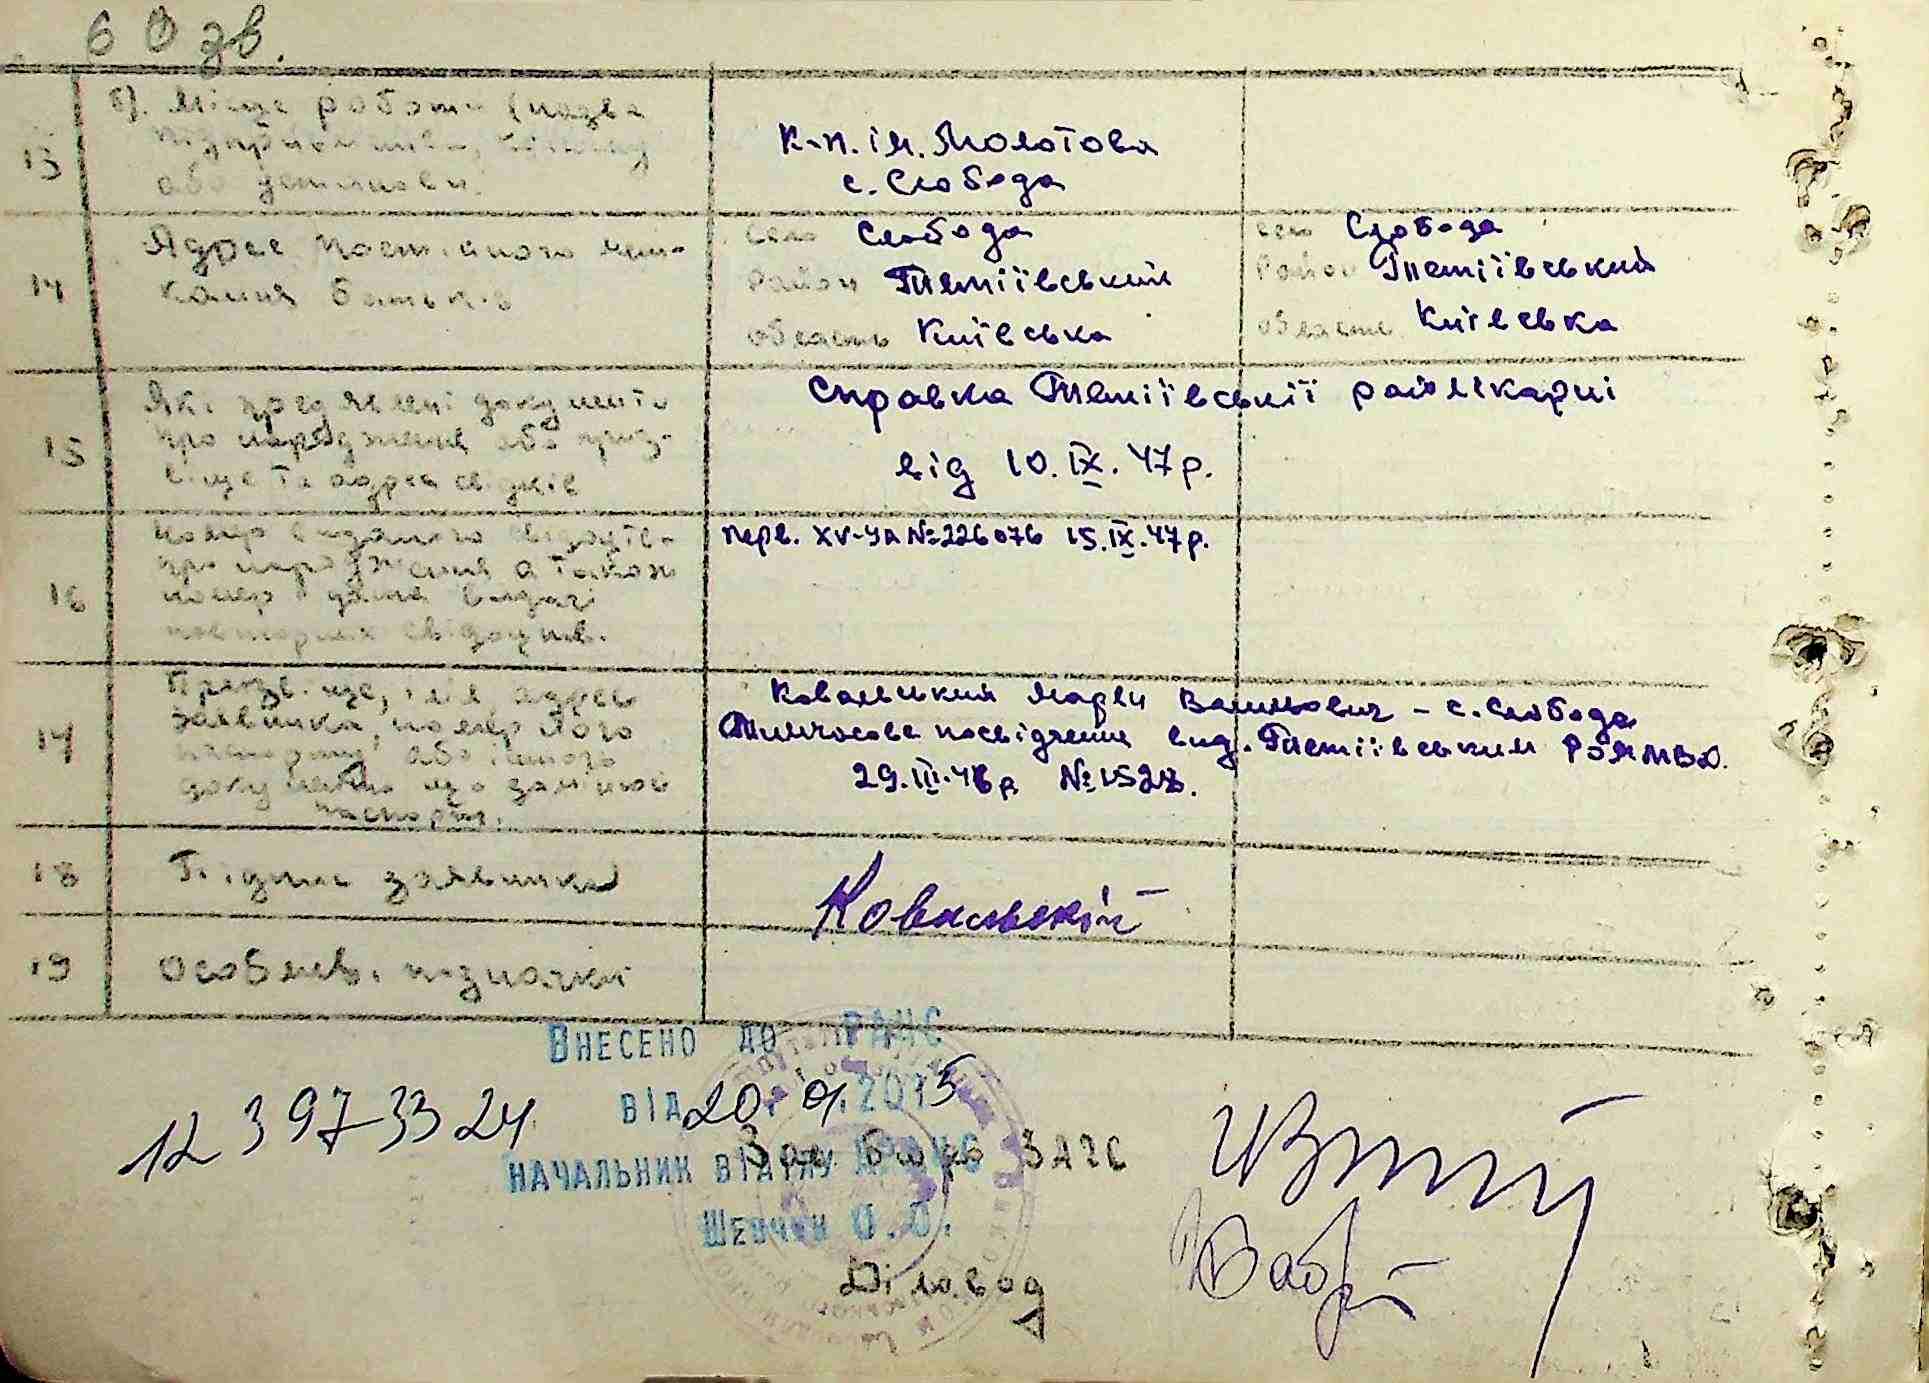 60 зв.
13
б). Місце роботи (назва
підприємства,
або установи
К-п. ім. Молотова
с. Слобода
14
Адрес постійного меш-
кання батьків
село Слобода
район Тетіївський
область Київська
село Слобода
район Тетіївський
область Київська
15
Які пред'явлені документи
про народження або приз-
віще та адрес свідків
Справка Тетіївської райлікарні
від 10.IX.47р.
16
номер виданого свідоцтв-
про народження а також
номер і дата видачі
повторних свідоцтв.
перв. XV-УА №226076 15.IX.47р.
17
Прізвіще, ім'я, адрес
заявника, номер його
паспорту або іншого
документа що замінює
паспорт.
Ковальський Марян Васильович - с. Слобода
Тимчасове посвідчення вид. Тетіївським РОМВД.
29.III.46р №1528.
18
Підпис заявника
Ковальский
19
Особливі пізначки
Внесено до ДРАЦС
12 3973324
від 20.01.2015
Зав. Бюро ЗАГС
начальник відділу ДРАЦС
Шевчук О.О.
Діловод